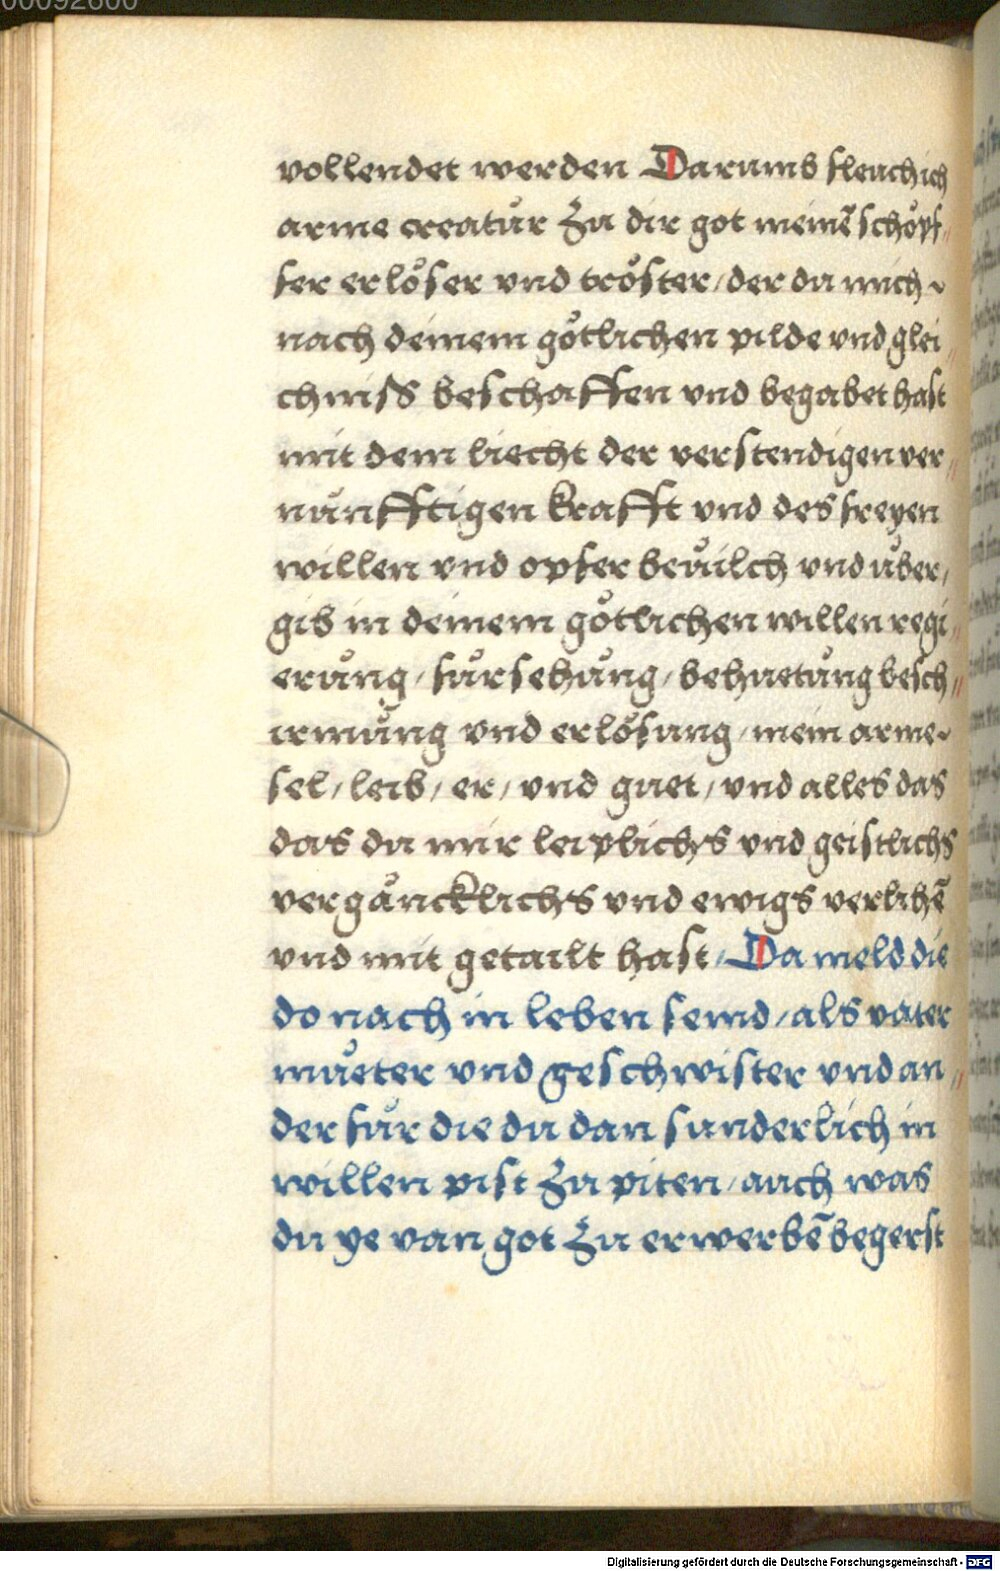 00092600
vollendet werden Darumb fleuch ich
arme creatůr zu dir got meinē schöpf„
fer erlöser vnd tröster / der du mich ~
nach deinem götlichen pilde vnd glei„
chniss beschaffen vnd begabet hast
mit dem liecht der verstendigen ver„
nůnfftigen krafft vnd des freyen
willen vnd opfer beuilch vnd uber„
gib in deinem götlichen willen regi„
erůng / fůrsehůng / behuetůng besch„
irmůng vnd erlösung / mein arme ~
sel / leib / er / vnd guet / vnd alles das
das du mir leiplichs vnd geistlichs
vergäncklichs vnd ewigs verlihē
vnd mit getailt hast / Da meld die
do nach in leben seind / als vater
můeter vnd geschwister vnd an„
der fůr die du dan sunderlich in
willen pist zu piten / auch was
du ye van got zu erwerbē begerst
Digitalisierung gefördert durch die Deutsche Forschungsgemeinschaft - DFG